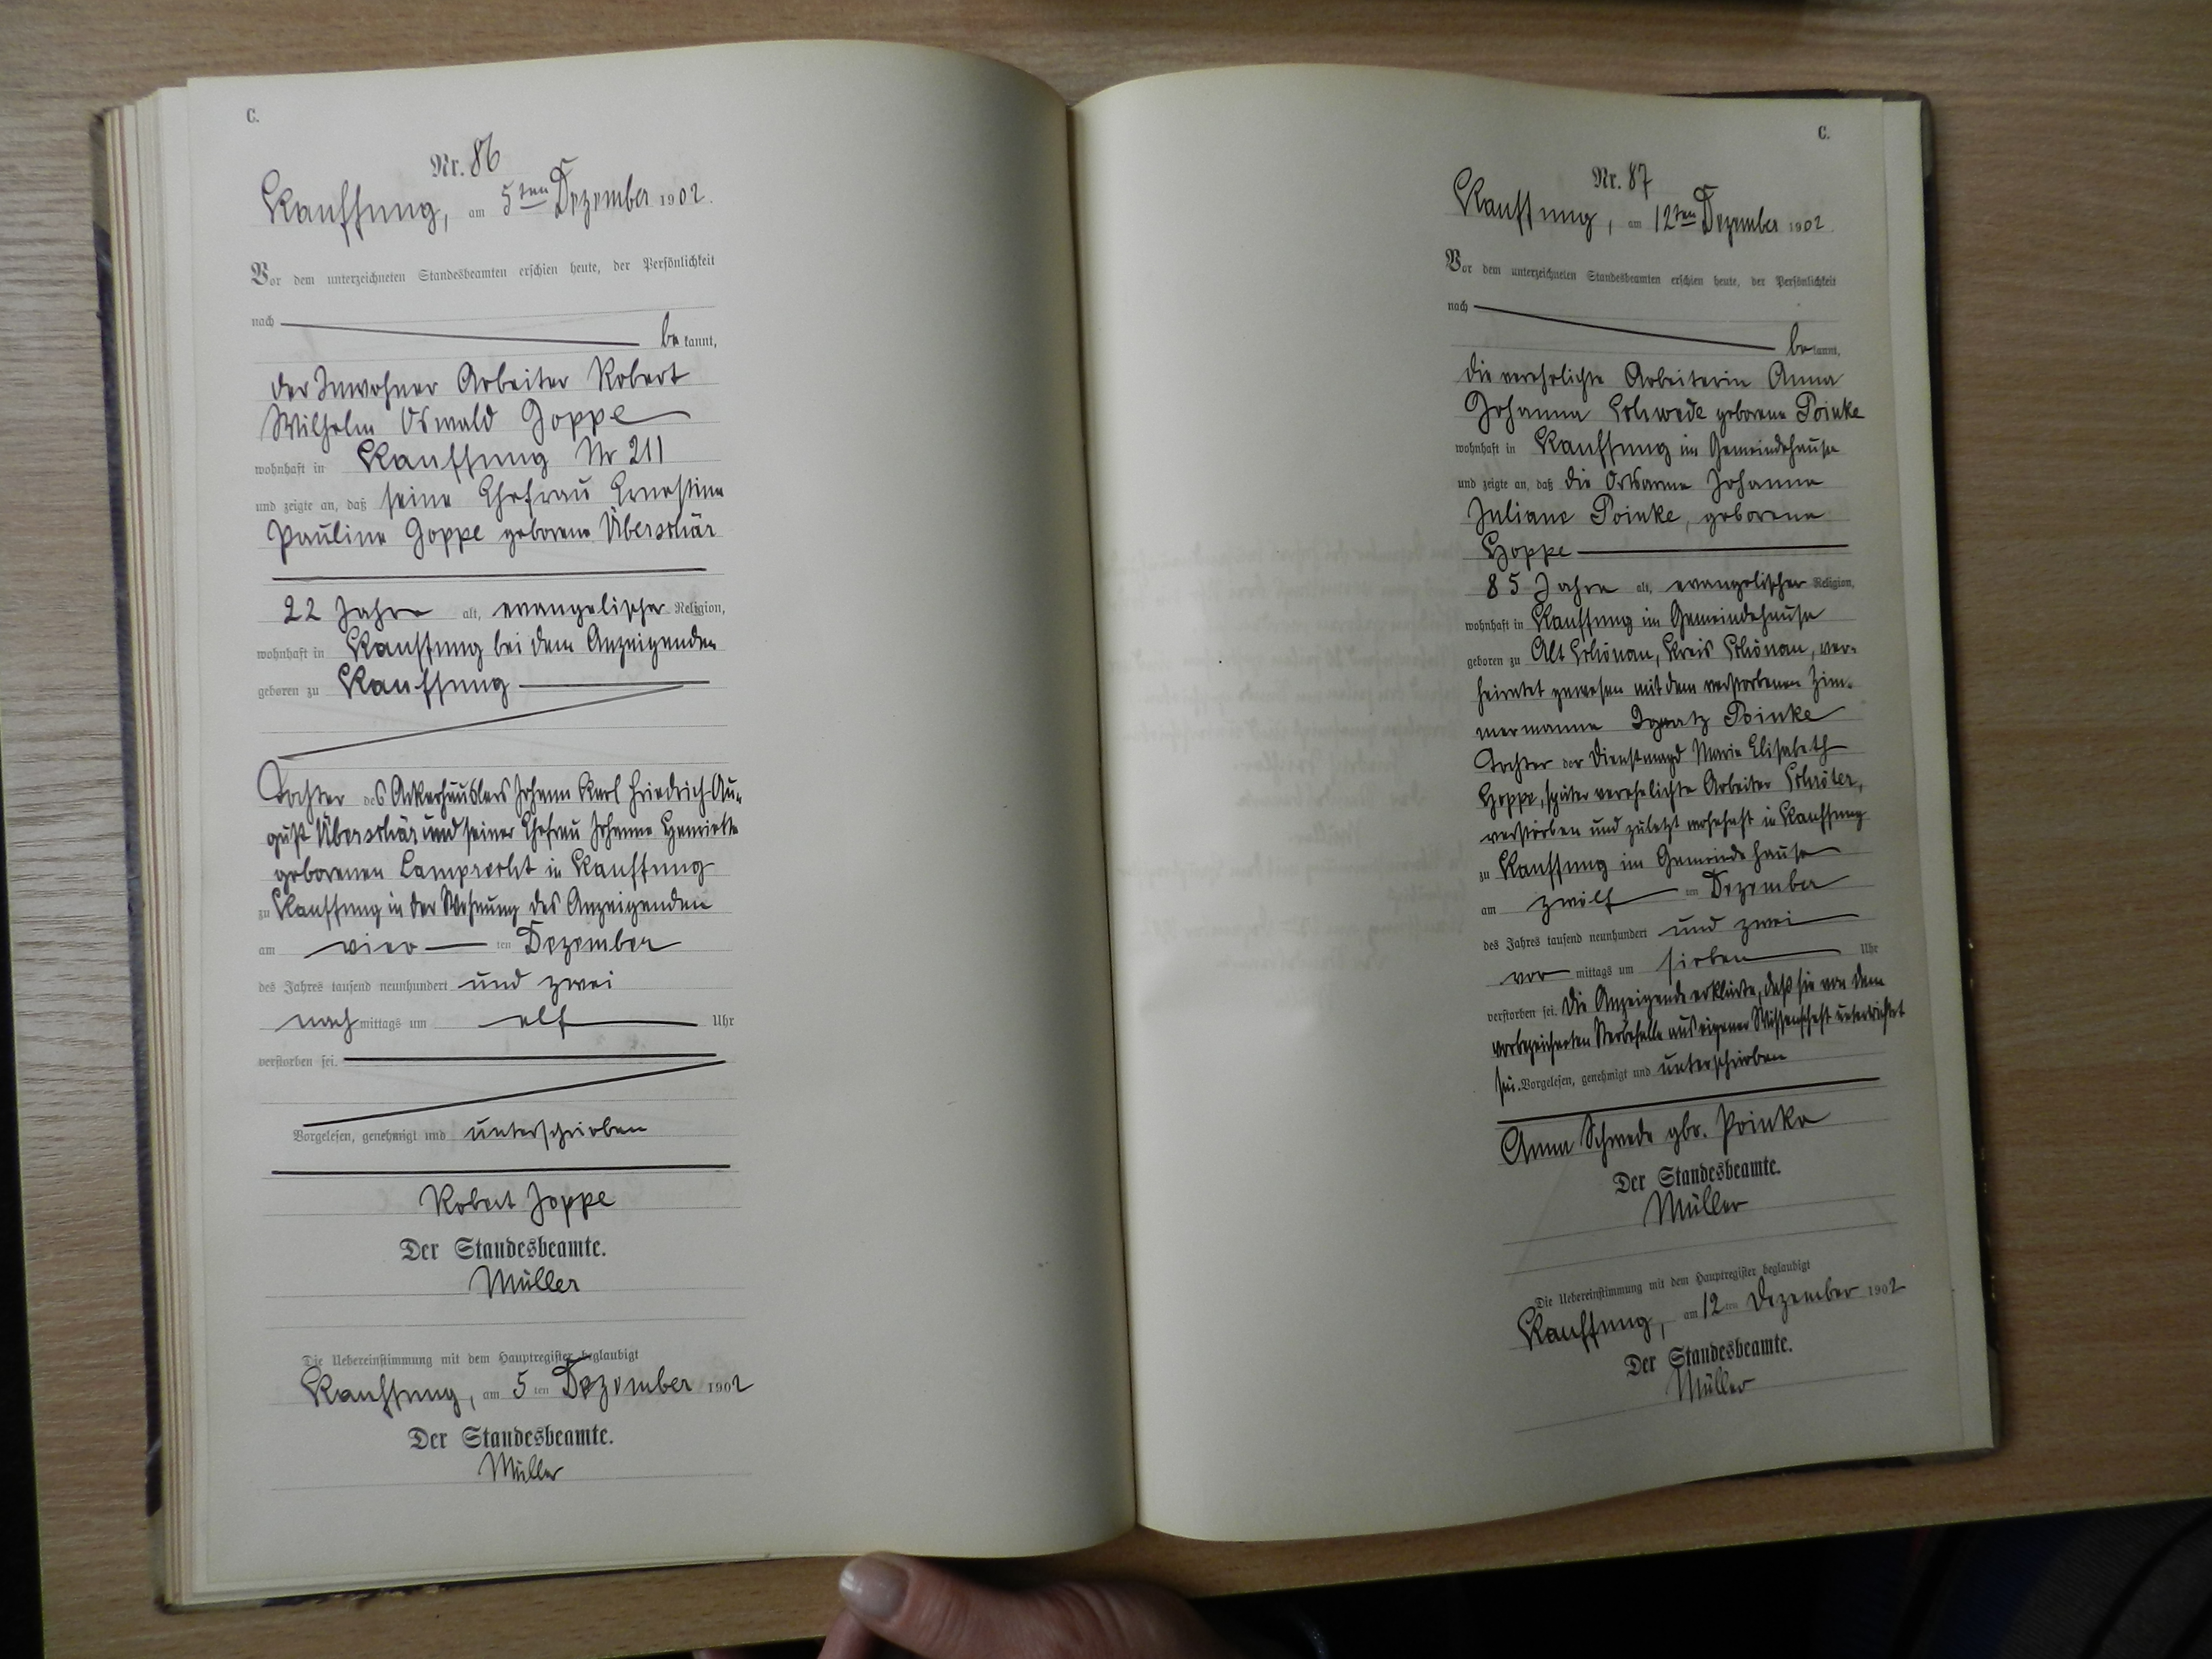 C.
Nr. 86
Kauffung, am 5ten Dezember 1902.
Vor dem unterzeichneten Standesbeamten erschien heute, der Persönlichkeit
nach
be kannt,
der Inwohner Arbeiter Robert
Wilhelm Oswald Joppe
wohnhaft in Kauffung Nr 211
und zeigte an, daß seine Ehefrau Ernestine
Pauline Joppe geborene Überschär
22 Jahre alt, evangelischer Religion,
wohnhaft in Kauffung bei dem Anzeigenden
geboren zu Kauffung
Tochter des Ackerhäuslers Johann Karl Friedrich Au-
gust Überschär und seiner Ehefrau Johanne Henriette
geborenen Lamprecht in Kauffung
zu Kauffung in der Wohnung des Anzeigenden
am vier ten Dezember
des Jahres tausend neunhundert und zwei
nach mittags um elf Uhr
verstorben sei.
Vorgelesen, genehmigt und unterschrieben
Robert Joppe
Der Standesbeamte.
Müller
Die Uebereinstimmung mit dem Hauptregister beglaubigt
Kauffung, am 5 ten Dezember 1902
Der Standesbeamte.
Müller
C.
Nr. 87
Kauffung, am 12ten Dezember 1902.
Vor dem unterzeichneten Standesbeamten erschien heute, der Persönlichkeit
nach
be kannt,
die verehelichte Arbeiterin Anna
Johanna Schwede geborene Poinke
wohnhaft in Kauffung im Gemeindehause
und zeigte an, daß die Ortsarme Johanne
Juliane Poinke, geborene
Hoppe
85 Jahre alt, evangelischer Religion,
wohnhaft in Kauffung im Gemeindehause
geboren zu Alt Schönau, Kreis Schönau, ver-
heiratet gewesen mit dem verstorbenen Zim-
mermanne Ignatz Poinke
Tochter der Dienstmagd Marie Elisabeth
Hoppe, später verehelichte Arbeiter Schröter,
verstorben und zuletzt wohnhaft in Kauffung
zu Kauffung im Gemeindehause
am zwölf ten Dezember
des Jahres tausend neunhundert und zwei
vor mittags um sieben Uhr
verstorben sei. Die Anzeigende erklärte, daß sie von dem
vorbezeichneten Sterbefalle aus eigener Wissenschaft unterrichtet
sei. Vorgelesen, genehmigt und unterschrieben
Anna Schwede gbr. Poinke
Der Standesbeamte.
Müller
Die Uebereinstimmung mit dem Hauptregister beglaubigt
Kauffung, am 12 ten Dezember 1902
Der Standesbeamte.
Müller